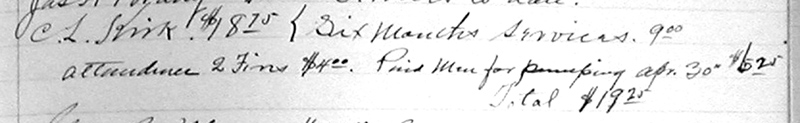 to date.
C. L. Kirk. $18 25 { Six Months Services. 9 00
attendance 2 Fires $4 00. Paid Men for pumping Apr. 30" $6 25
Total $19 25